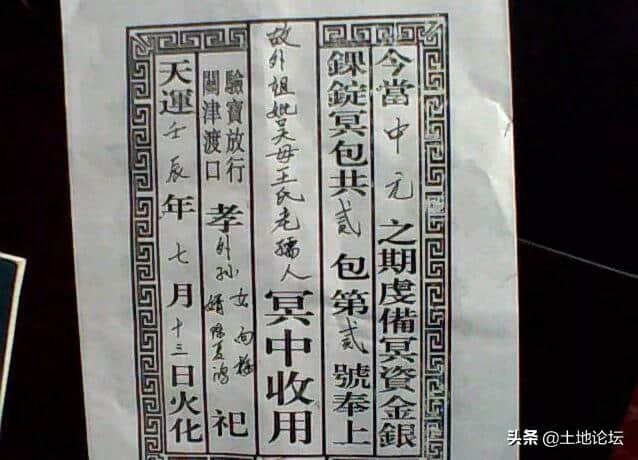 今當中元之期虔備冥資金銀
錁錠冥包共貳包第貳號奉上
故外祖妣吴母王氏老孺人冥中收用
驗寶放行
關津渡口
孝外孙女向
婿陈夏鸿
祀
天運壬辰年七月十三日火化
头条 @土地论坛